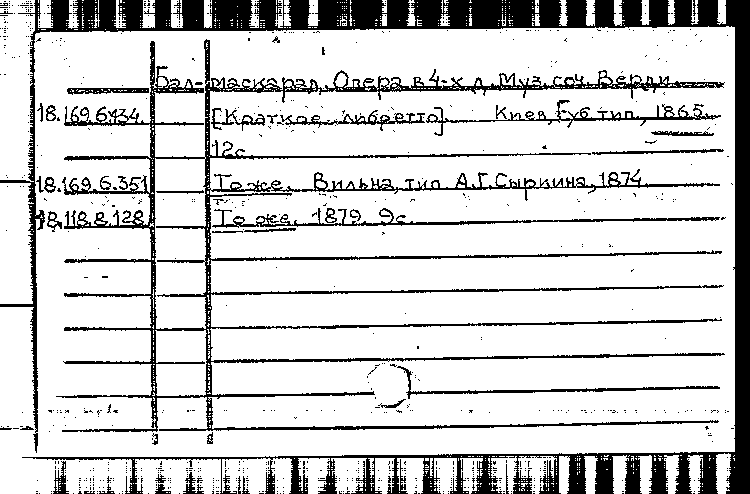 Бал-маскарад. Опера в 4-х д. Муз. соч. Верди.
18.169.6.434. [Краткое либретто]. Киев, Губ. тип., 1865.
12с.
18.169.6.351 То же. Вильна, тип. А.Г. Сыркина, 1874.
18.118.8.128 То же. 1879. 9с.